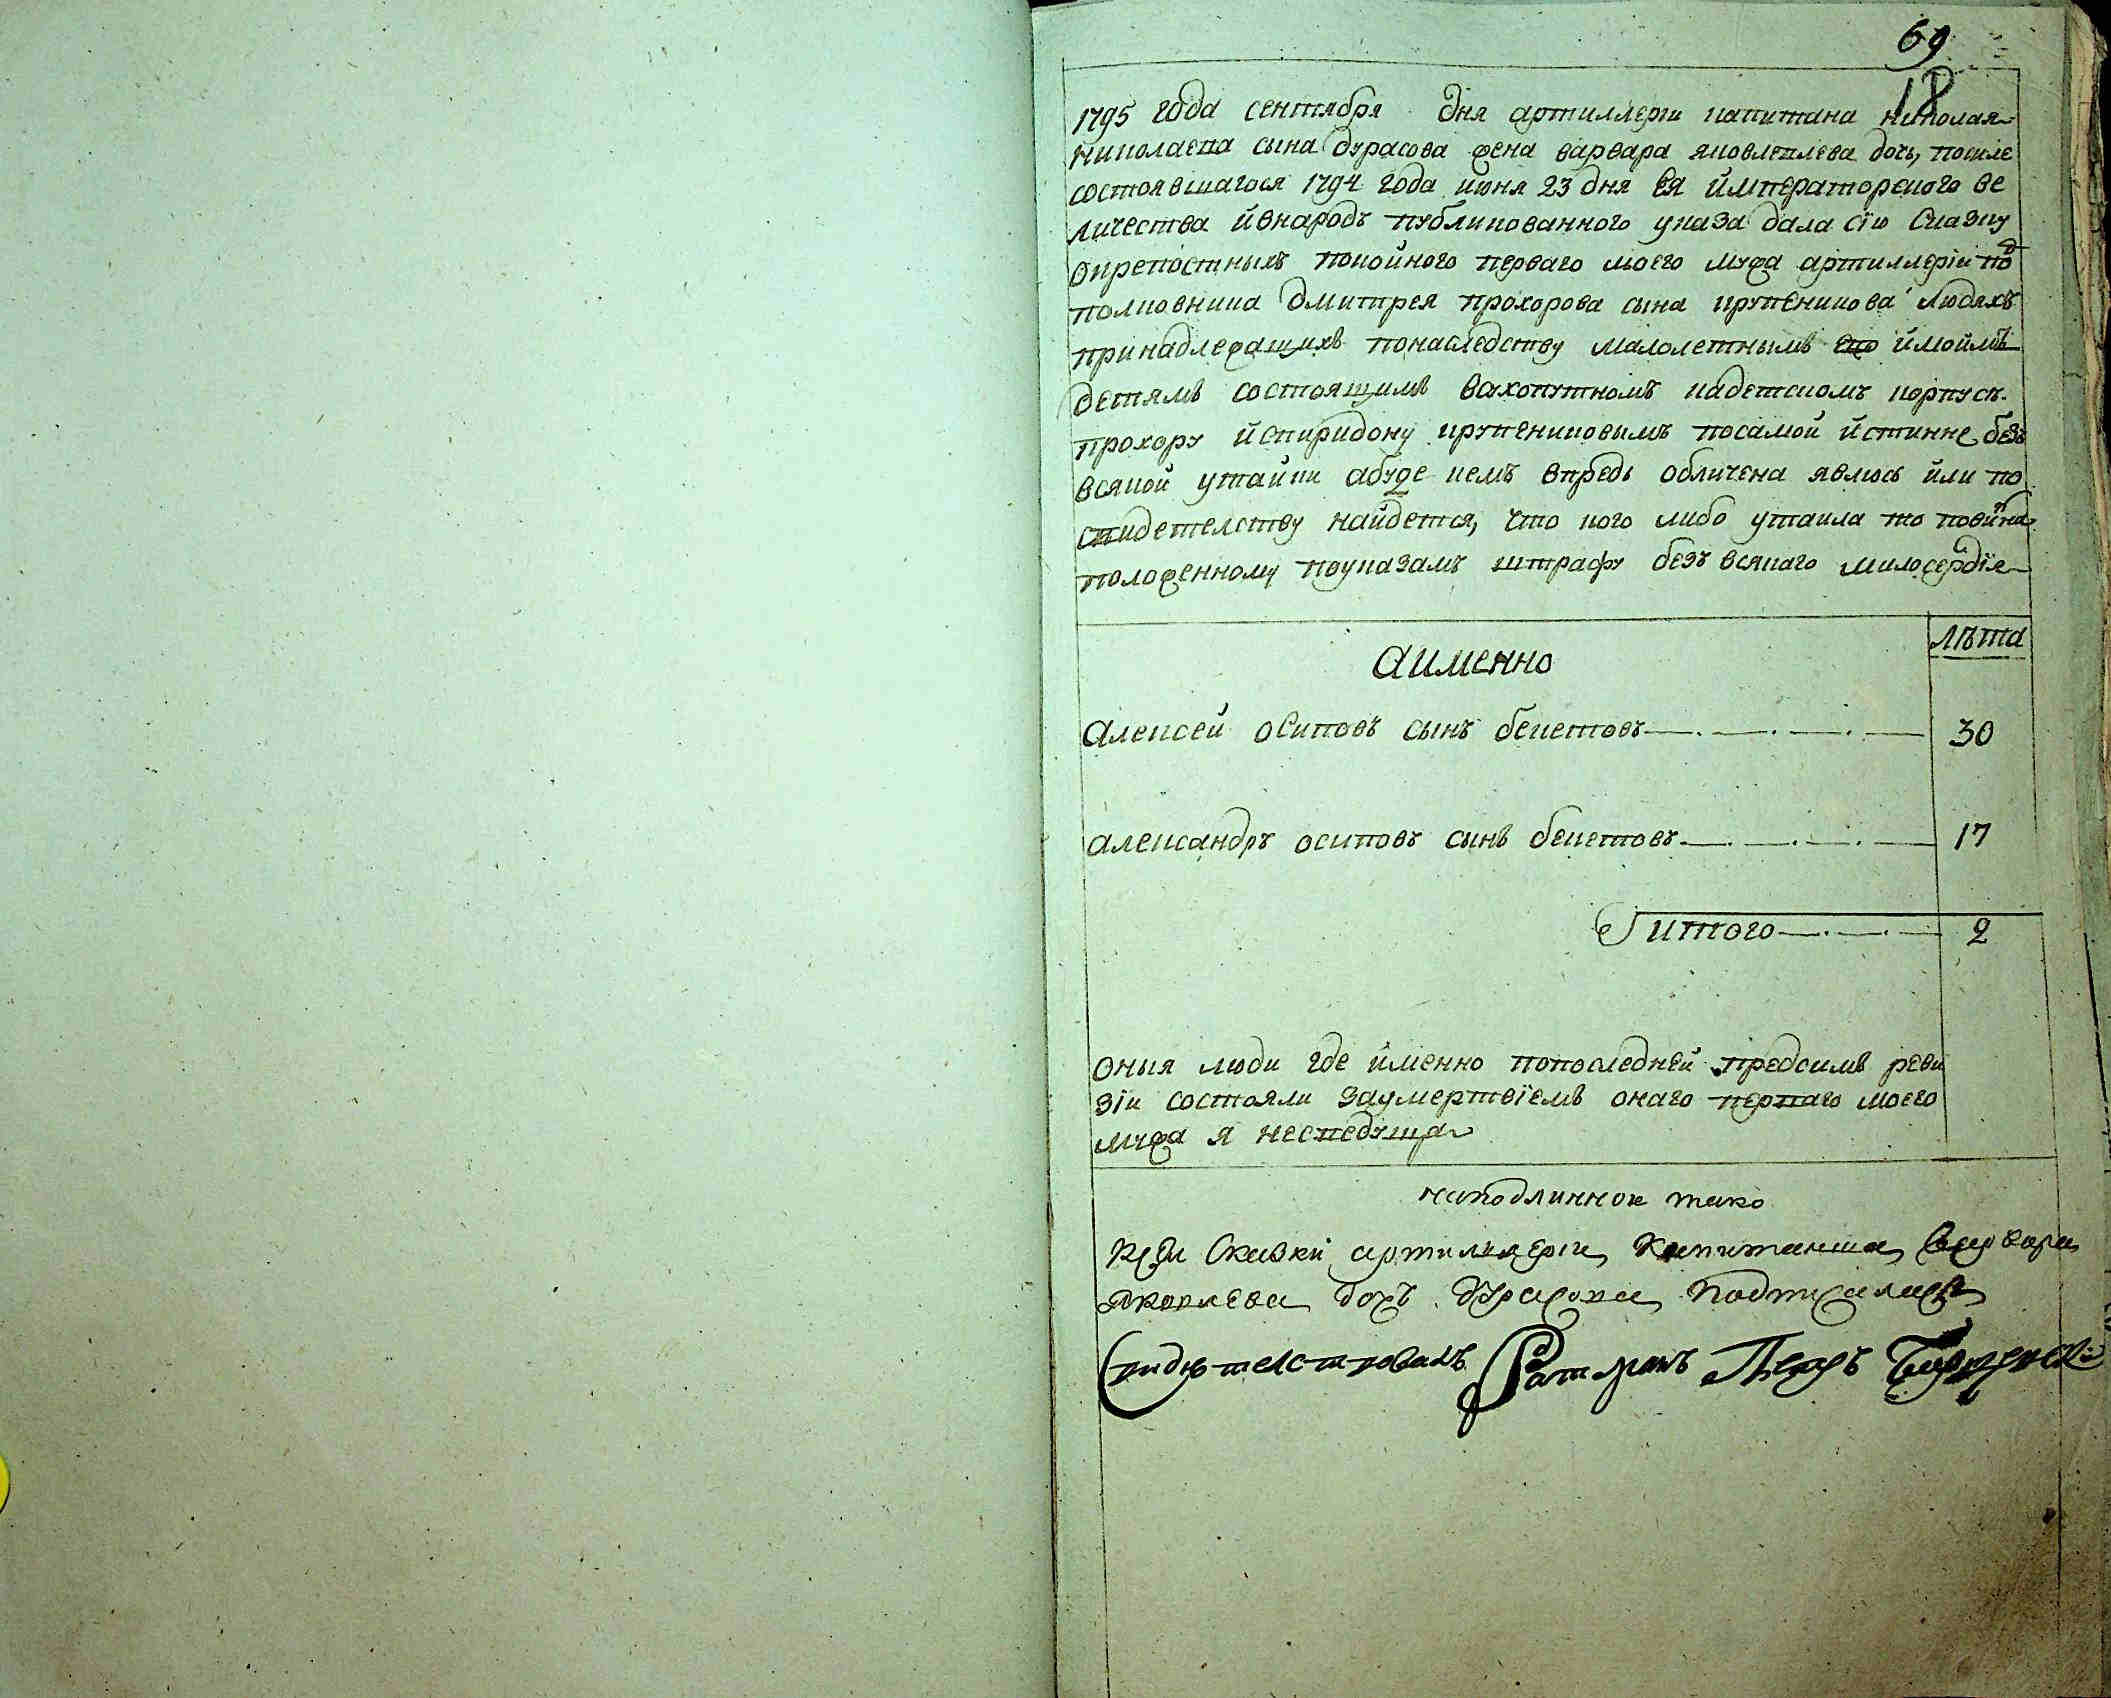 69
18
1795 года сентября дня артиллерїи капитана николая
николаева сына дурасова жена варвара яковлевлева дочь, посиле
состоявшагося 1794 года июня 23 дня Ея императорского ве
личества ивнародъ публикованного указа дала сїю сказку
окрепостныхъ покойного перваго моего мужа артиллерїи под
полковника дмитрея прохорова сына крупеникова людяхъ
принадлежащихъ понаследству малолетнымъ его имоимъ
детямъ состоящимъ всухопутномъ кадетскомъ корпусъ.
прохору испиридону крупениковымъ посамой истинне безъ
всякой утайки абуде кемъ впредь обличена явлюсь или по
свидетелству найдется, что кого либо утаила то повинна
положенному поуказамъ штрафу безъ всякаго милосердїя
лѣта
Аименно
Алексей осиповъ сынъ бекетовъ 30
александръ осиповъ сынъ бекетовъ 17
итого 2
оныя люди где именно попоследней предсимъ реви
зїи состояли заумертвїемъ онаго перваго моего
мужа я несведуща
наподлинной тако
Ксей Скаски артиллерїи капитанша варвара
Яковлева дочь дурасова подписалася
Свидѣтелствовалъ Ратманъ Петръ